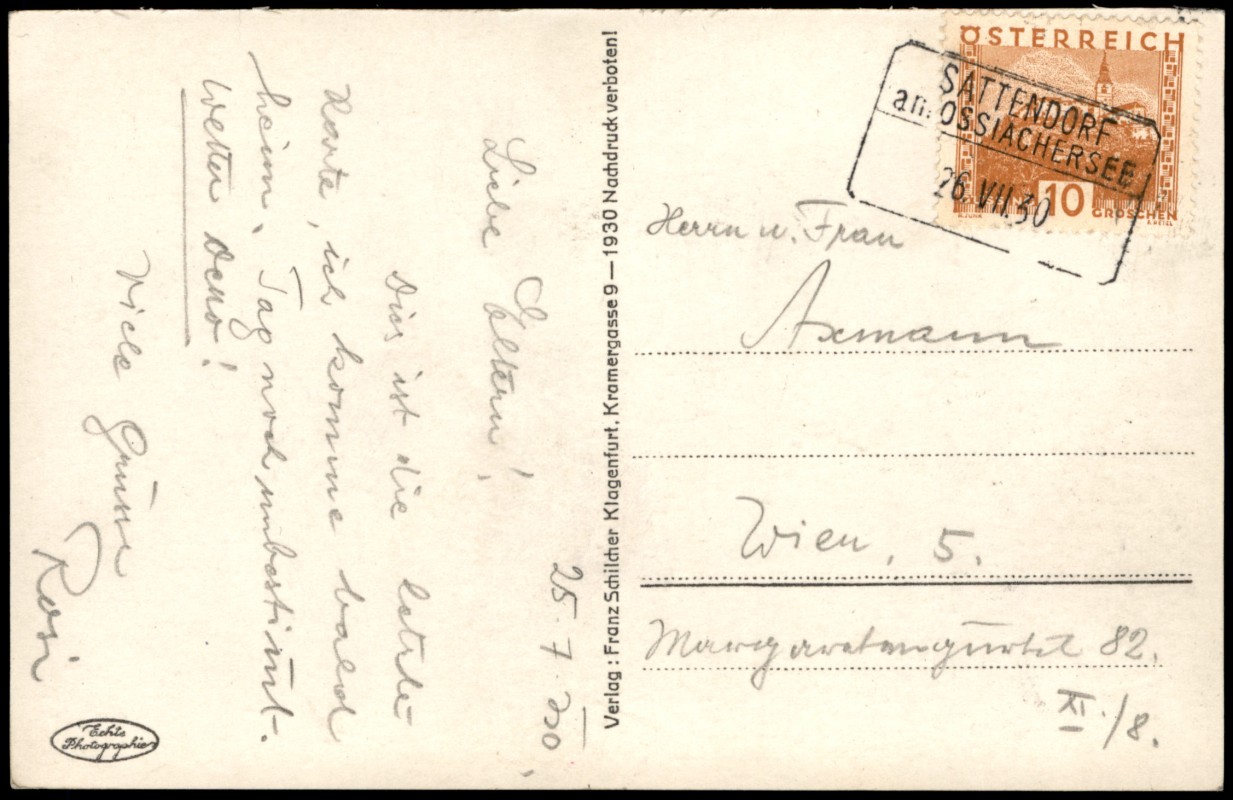 25. 7. 30.
Liebe Eltern!
Dies ist die letzte
Karte, ich komme bald
heim. Tag noch unbestimmt.
Wetter
Viele Grüsse
Rosi
Echte
Photographie
Verlag: Franz Schilcher Klagenfurt, Kramergasse 9 — 1930 Nachdruck verboten!
ÖSTERREICH
10
GROSCHEN
SATTENDORF
am OSSIACHERSEE
26. VII. 30
Herrn u. Frau
Axmann
Wien, 5.
Margaretengürtel 82.
XI./8.